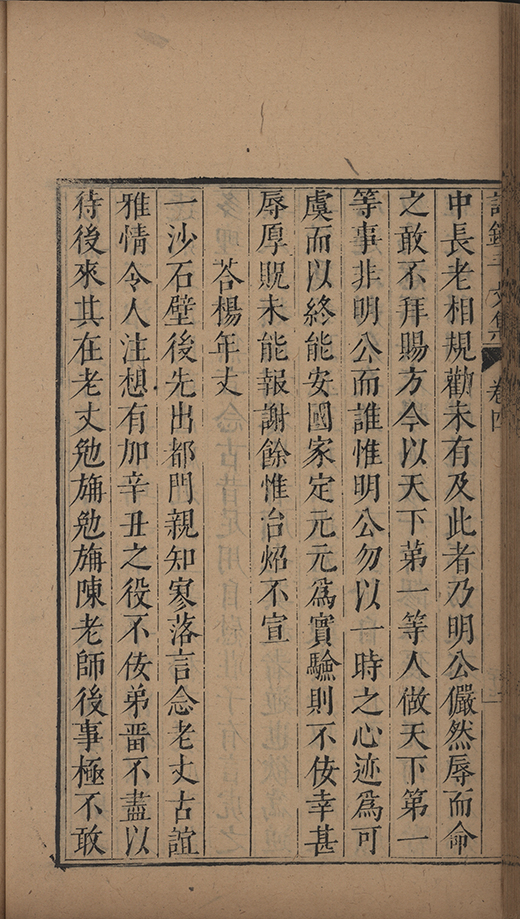 文集 卷四
中長老相規勸未有及此者乃明公儼然辱而命
之敢不拜賜方今以天下第一等人做天下第一
等事非明公而誰惟明公勿以一時之心迹為可
虞而以終能安國家定元元為實驗則不佞幸甚
辱厚貺未能報謝餘惟台炤不宣
荅楊年丈
一沙石壁後先出都門親知寥落言念老丈古誼
雅情令人注想有加辛丑之役不佞弟畱不盡以
待後來其在老丈勉旃勉旃陳老師後事極不敢